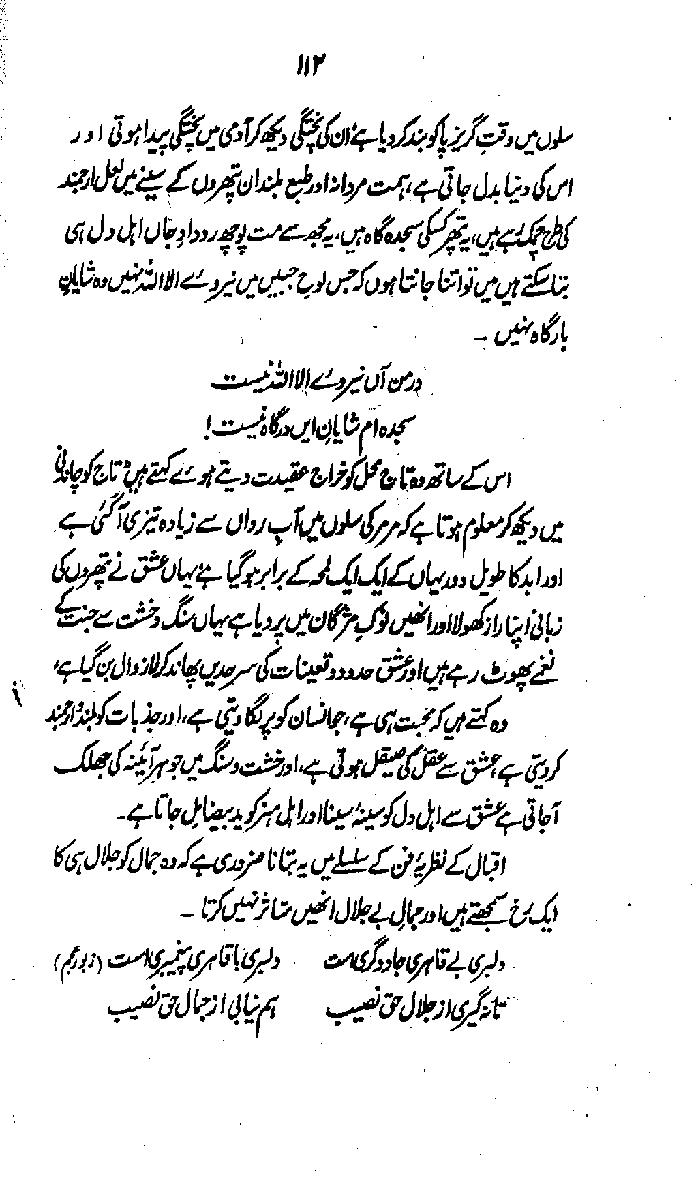 ۱۱۲
سلوں میں وقتِ گریز پا کو بند کر دیا ہے، ان کی پختگی دیکھ کر آدمی میں پختگی پیدا ہوتی اور
اس کی دنیا بدل جاتی ہے، ہمت مردانہ اور طبع بلند ان پتھروں کے سینے میں لعل ارجمند
کی طرح چمک رہے ہیں، یہ پتھر کس کی سجدہ گاہ ہیں، یہ مجھ سے مت پوچھ روداد جاں اہل دل ہی
بتا سکتے ہیں میں تو اتنا جانتا ہوں کہ جس لوحِ جبیں میں نیروے الا اللہ نہیں وہ شایانِ
بارگاہ نہیں ۔
در من آں نیروے الا اللہ نیست
سجدہ ام شایانِ ایں درگاہ نیست !
اس کے ساتھ وہ تاج محل کو خراج عقیدت دیتے ہوئے کہتے ہیں، تاج کو چاندنی
میں دیکھ کر معلوم ہوتا ہے کہ مرمر کی سلوں میں آپ رواں سے زیادہ تیزی آگئی ہے
اور ابد کا طویل دور یہاں کے ایک ایک لمحہ کے برابر ہو گیا ہے، یہاں عشق نے پتھروں کی
زبانی اپنا راز کھولا اور انھیں نوکِ مژگاں میں پرو دیا ہے یہاں سنگ و خشت سے جنت کے
نغمے پھوٹ رہے ہیں اور عشق حدود و تعینات کی سرحدیں پھاند کر لازوال بن گیا ہے،
وہ کہتے ہیں کہ محبت ہی ہے، جو انسان کو پر لگا دیتی ہے، اور جذبات کو بلند و ارجمند
کر دیتی ہے، عشق سے عقل کی صیقل ہوتی ہے، اور خشت و سنگ میں جوہر آئینہ کی جھلک
آجاتی ہے عشق سے اہل دل کو سینۂ سینا اور اہل ہنر کو ید بیضا مل جاتا ہے۔
اقبال کے نظریۂ فن کے سلسلے میں یہ بتانا ضروری ہے کہ وہ جمال کو جلال ہی کا
ایک رخ سمجھتے ہیں اور جمالِ بے جلال انھیں متاثر نہیں کرتا ۔
دلبری بے قاہری جادوگری است دلبری با قاہری پیغمبری است (زبور عجم)
تا نہ گیری از جلال حق نصیب ہم نیابی از جمال حق نصیب